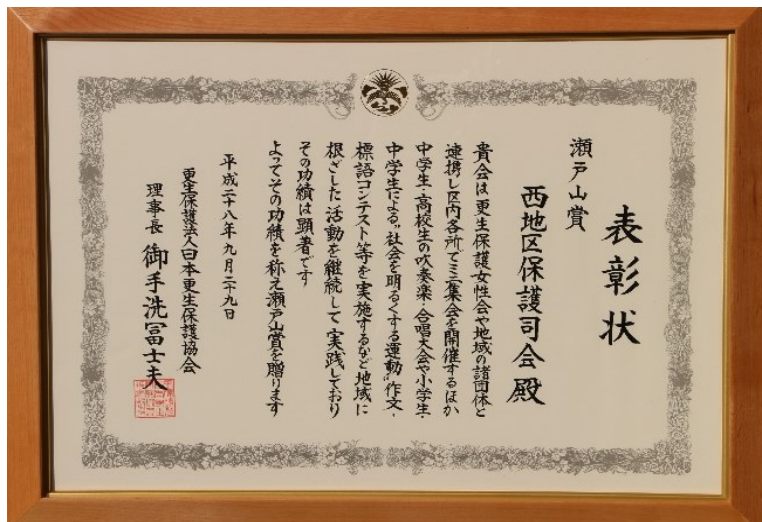 表彰状
瀬戸山賞
西地区保護司会殿
貴会は更生保護女性会や地域の諸団体と
連携し区内各所でミニ集会を開催するほか
中学生・高校生の吹奏楽・合唱大会や小学生・
中学生による“社会を明るくする運動”作文・
標語コンテスト等を実施するなど地域に
根ざした活動を継続して実践しており
その功績は顕著です
よってその功績を称え瀬戸山賞を贈ります
平成二十八年九月二十九日
更生保護法人日本更生保護協会
理事長 御手洗冨士夫